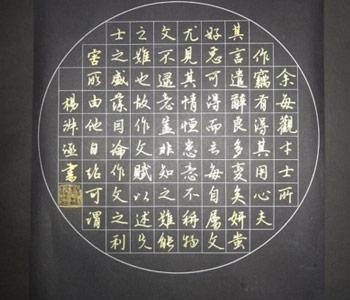 余每觀才士所
作竊有得其用心夫
其言遣辭良多變矣妍蚩
好惡可得而言每自屬文
尤見其情恒患意不稱物
文不逮意蓋非知之難能
之難也故作文賦以述先
士之盛藻因論作文之利
害所由他日殆可謂
楊書